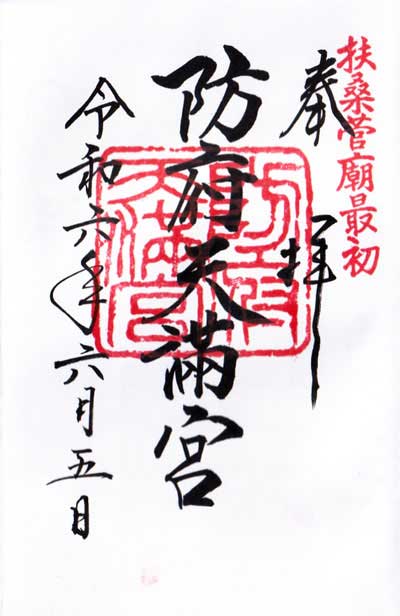 扶桑菅廟最初
奉拝
防府天満宮
令和六年六月五日
防府天満宮